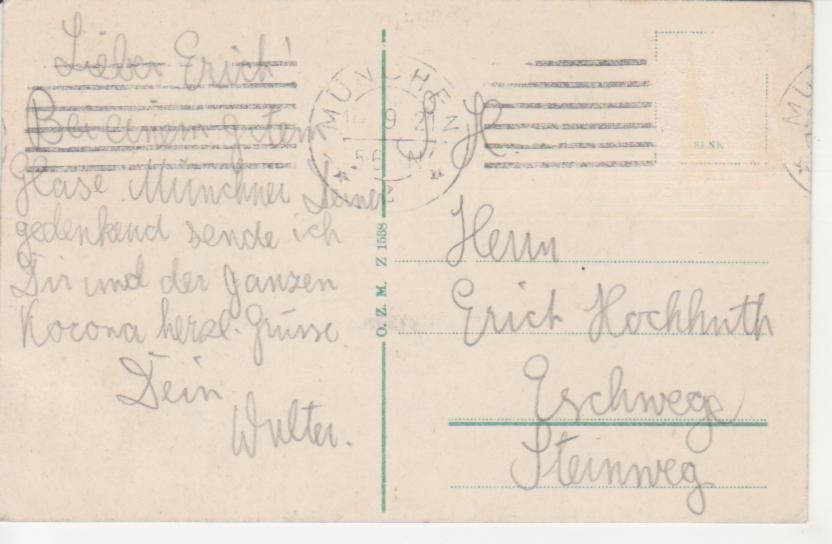 Lieber Erich!
Bei einem guten
Glase Münchner Deiner
gedenkend sende ich
Dir und der ganzen
Korona herzl. Grüsse
Dein
Walter.
MÜNCHEN
O. Z. M. Z 1538
H.
Herrn
Erich Hochhuth
Eschwege
Steinweg